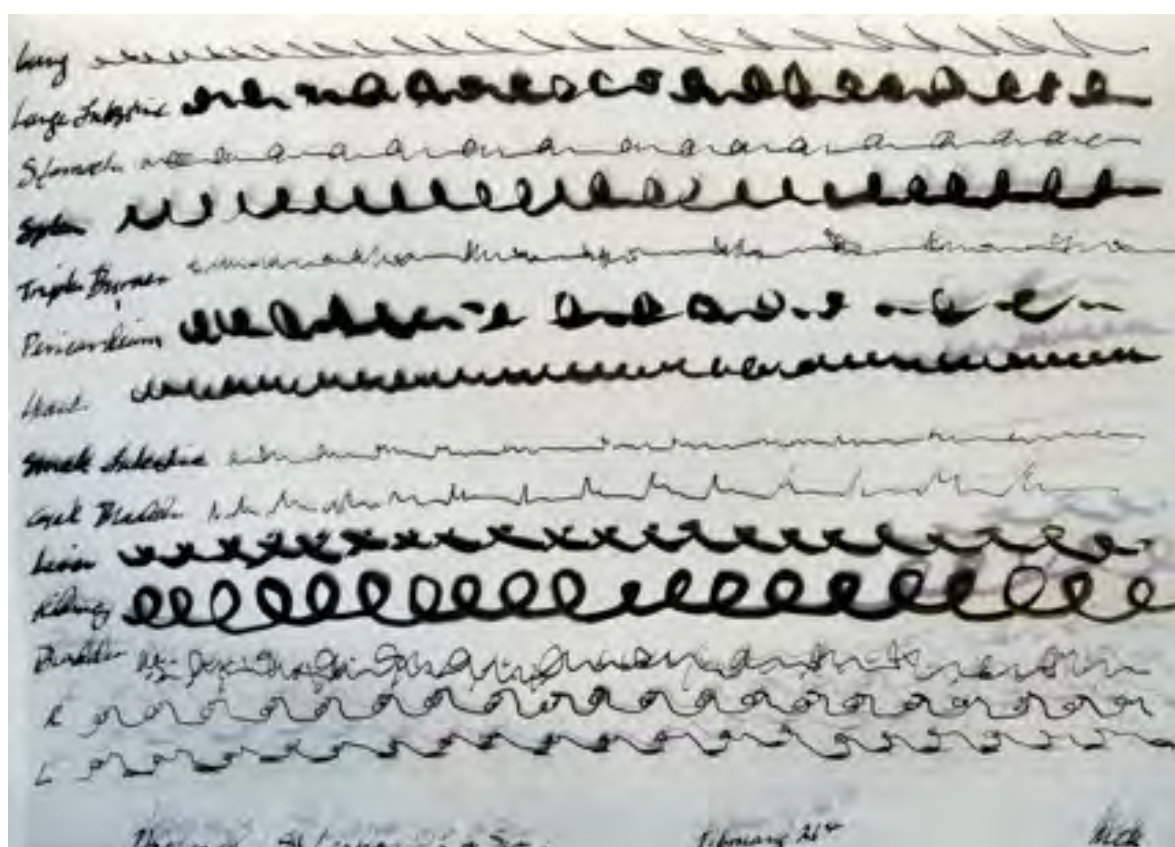 Lung
Large Intestine
Stomach
Spleen
Triple Burner
Pericardium
Heart
Small Intestine
Gall Bladder
Liver
Kidney
Bladder
R
L
February 26th